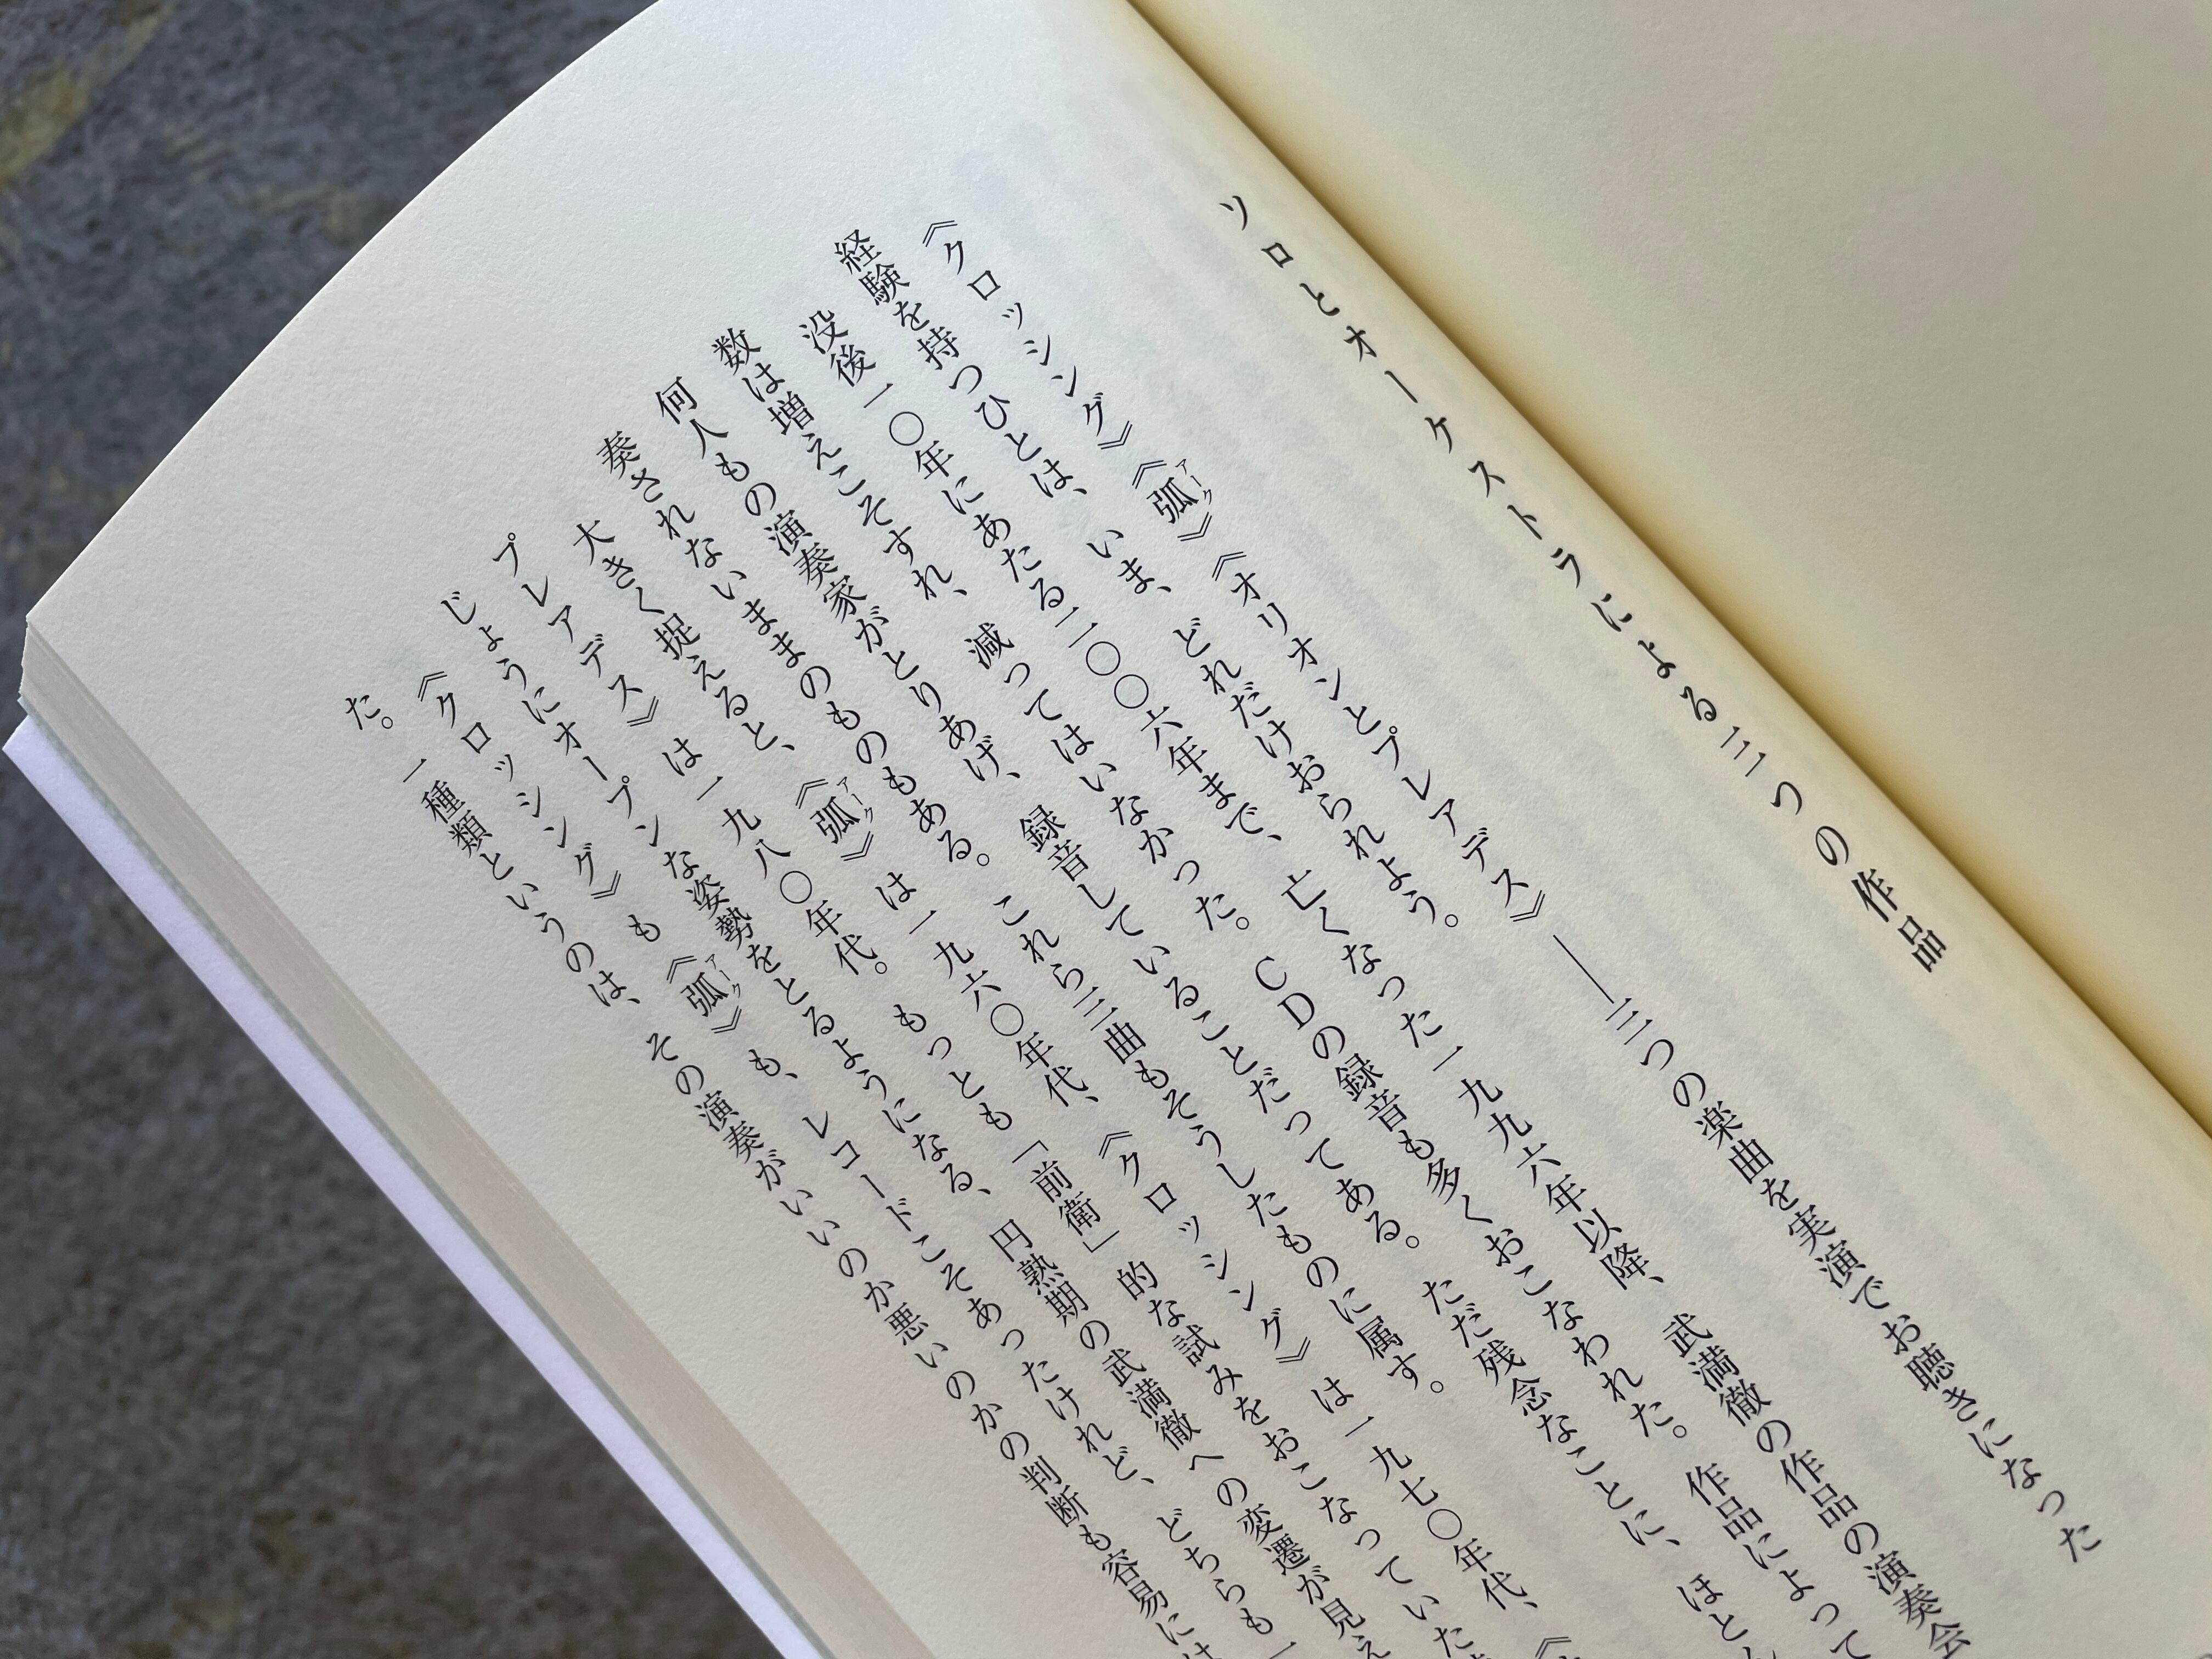 ソロとオーケストラによる三つの作品
《クロッシング》《弧》《オリオンとプレアデス》――三つの楽曲を実演でお聴きになった
アーク
経験を持つひとは、いま、どれだけおられよう。
没後一〇年にあたる二〇〇六年まで、亡くなった一九九六年以降、武満徹の作品の演奏会
数は増えこそすれ、減ってはいなかった。CDの録音も多くおこなわれた。作品によって
何人もの演奏家がとりあげ、録音していることだってある。ただ残念なことに、ほとん
奏されないままのものもある。これら三曲もそうしたものに属す。
大きく捉えると、《弧》は一九六〇年代、《クロッシング》は一九七〇年代、《
アーク
プレアデス》は一九八〇年代。もっとも「前衛」的な試みをおこなっていた
じょうにオープンな姿勢をとるようになる、円熟期の武満徹への変遷が見え
《クロッシング》も《弧》も、レコードこそあったけれど、どちらも一
アーク
た。一種類というのは、その演奏がいいのか悪いのかの判断も容易には